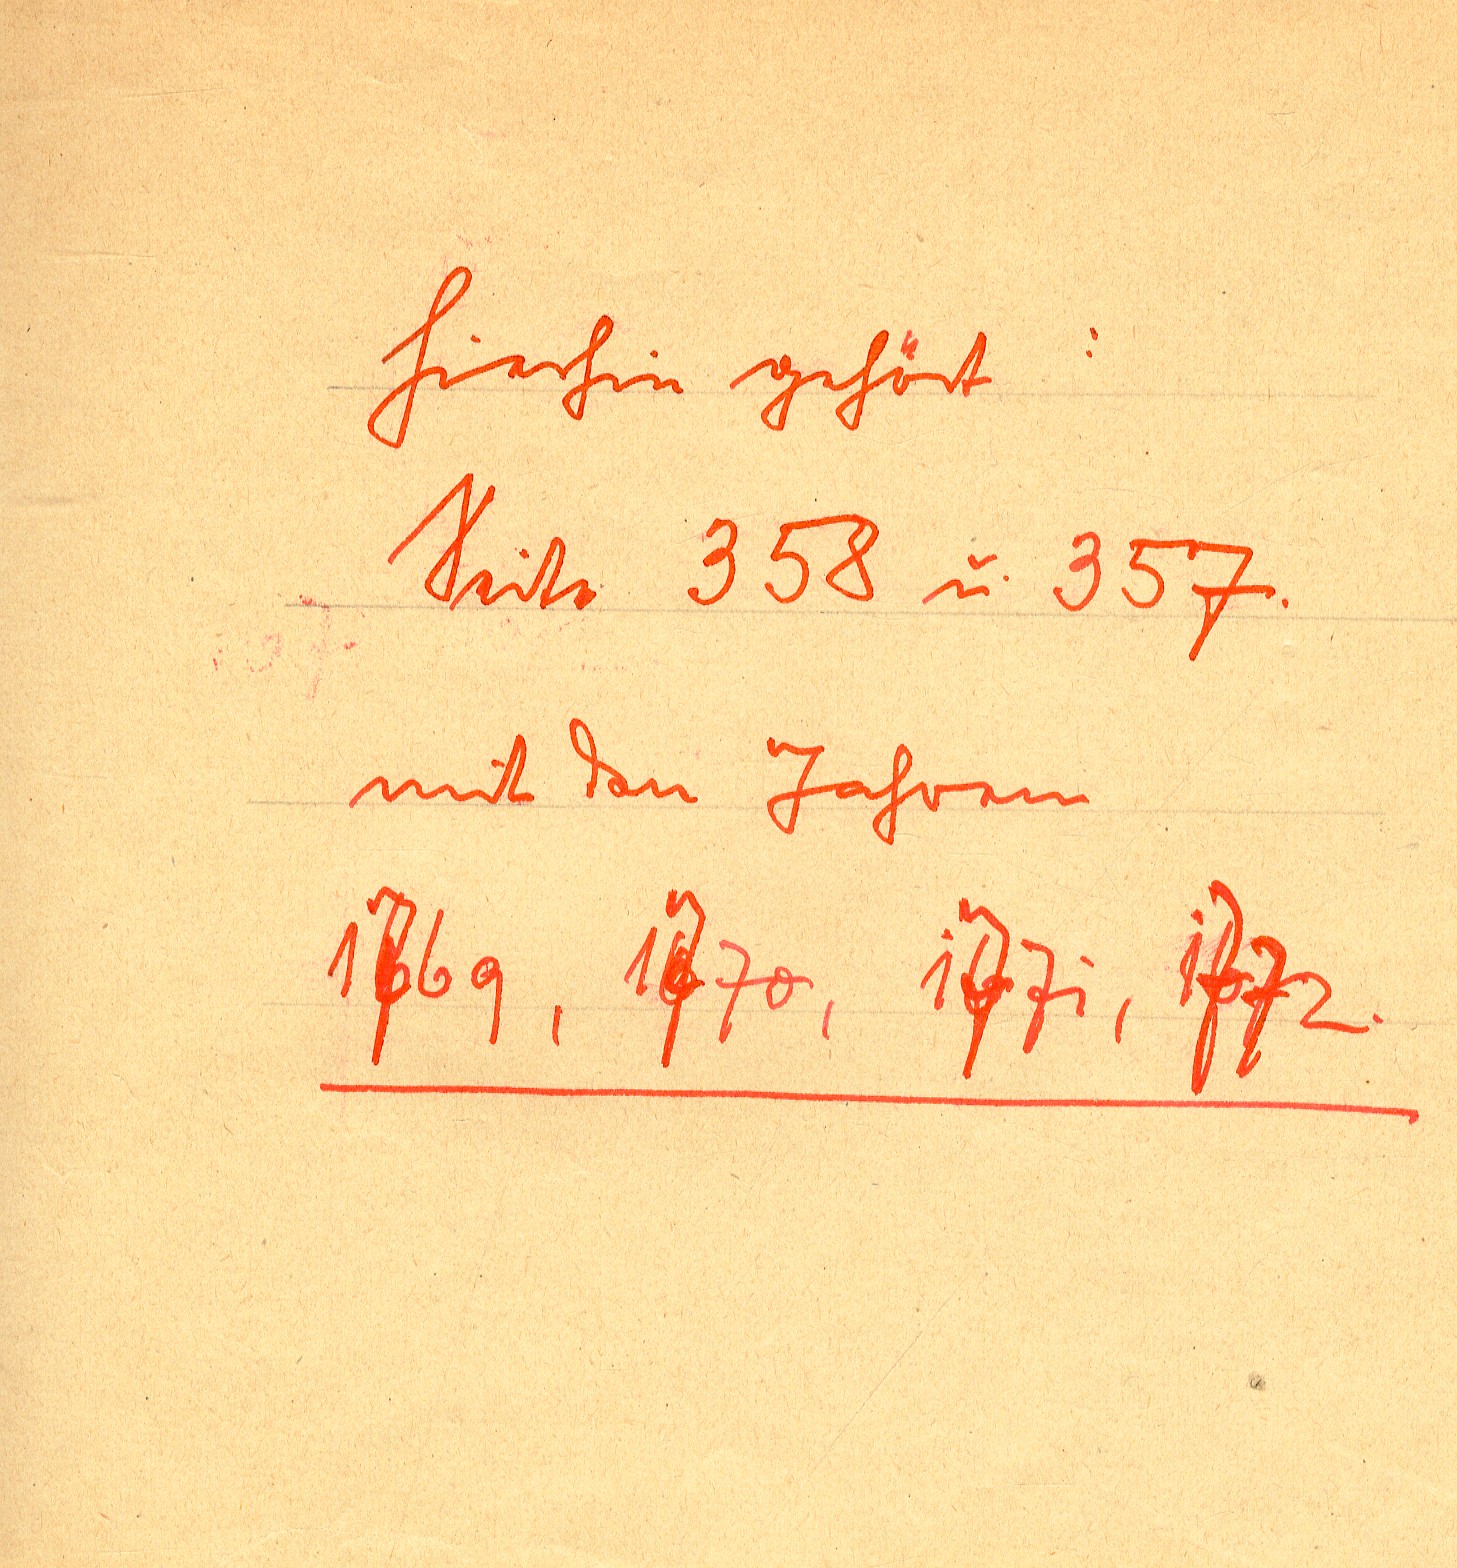 hierhin gehört :
Seite 358 u. 357.
mit den Jahren
1769, 1770, 1771, 1772.